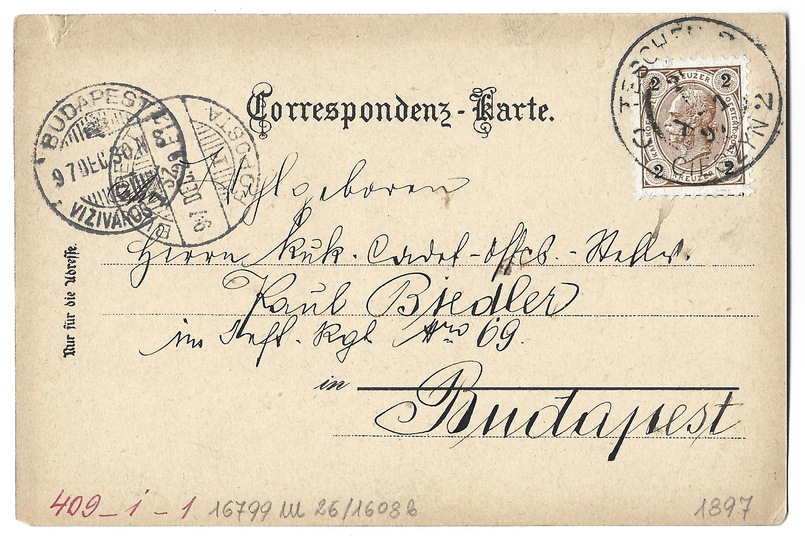 Correspondenz-Karte.
BUDAPEST
97 DEC 30
VIZIVÁROS
TESCHEN
2 2
KREUZER
2 2
KREUZER
Hochwohlgeboren
Herrn kuk. Cadet-Offcs.-Stellv.
Paul Biedler
im Inft. Rgt Nro 69.
in
Budapest
Nur für die Adresse.
409-i-1 16799 26/1608b 1897